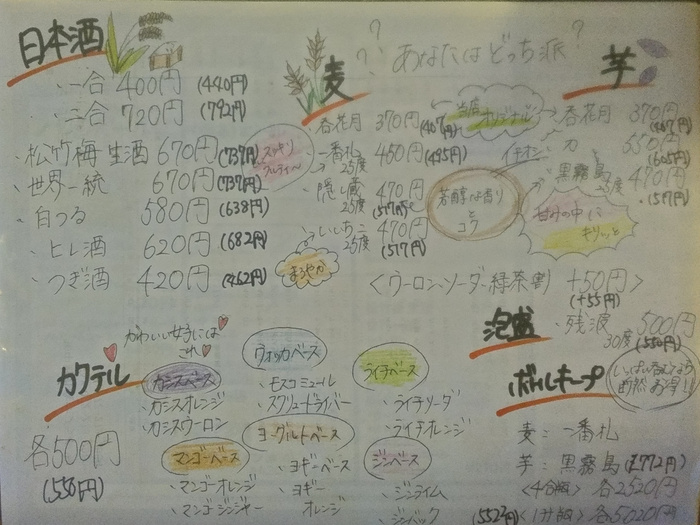 日本酒
・一合 400円 (440円)
・二合 720円 (792円)
・松竹梅 生酒 670円 (737円)
スッキリ フルーティー
・世界一統 670円 (737円)
・白つる 580円 (638円)
・ヒレ酒 620円 (682円)
・つぎ酒 420円 (462円)
? あなたはどっち派 ?
麦
・呑花月 370円 (407円)
当店オリジナル
・一番札 25度 450円 (495円)
・隠し蔵 25度 470円 (517円)
・いいちこ 25度 470円 (517円)
まろやか
芋
・呑花月 370円 (407円)
イチオシ 550円 (605円)
・黒霧島 25度 470円 (517円)
芳醇な香りとコク
甘みの中にキリッと
<ウーロン・ソーダ・緑茶割 +50円>
(+55円)
泡盛
・残波 30度 500円 (550円)
ボトルキープ
いっぱい呑むなら断然お得!!
麦:一番札
芋:黒霧島
(2,772円)
<4合瓶> 各2520円
<1升瓶> 各5020円
カクテル
かわいい女子にはこれ
各500円
(550円)
カシスベース
・カシスオレンジ
・カシスウーロン
ウォッカベース
・モスコミュール
・スクリュードライバー
ライチベース
・ライチソーダ
・ライチオレンジ
マンゴーベース
・マンゴーオレンジ
・マンゴージンジャー
ヨーグルトベース
・ヨギーベース
・ヨギーオレンジ
ジンベース
・ジンライム
・ジンバック